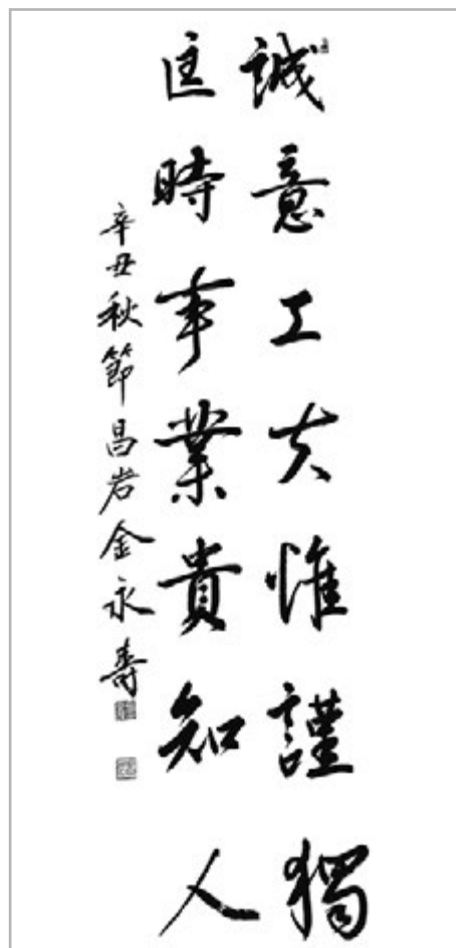 誠意工夫惟謹獨
匡時事業貴知人
辛丑秋節昌岩金永壽